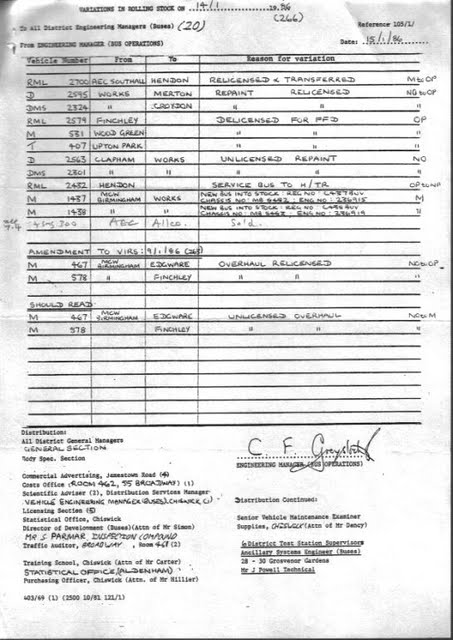 VARIATIONS IN ROLLING STOCK ON 14/1 1986
(266)
To All District Engineering Managers (Buses) (20)
Reference 105/1/
From ENGINEERING MANAGER (BUS OPERATIONS)
Date: 15/1/86
Vehicle Number From To Reason for variation
RML 2700 AEC SOUTHALL HENDON RELICENSED & TRANSFERRED M to OP
D 2595 WORKS MERTON REPAINT RELICENSED NO to OP
DMS 2324 " CROYDON " " "
RML 2579 FINCHLEY DELICENSED FOR FFD OP
M 531 WOOD GREEN " " "
T 407 UPTON PARK " " "
D 2563 CLAPHAM WORKS UNLICENSED REPAINT NO
DMS 2301 " " " " "
RML 2432 HENDON SERVICE BUS TO H/TR OP to NP
M 1437 MCW BIRMINGHAM WORKS NEW BUS INTO STOCK: REG NO: C437BUV
CHASSIS NO: MB 8482; ENG NO: 236915 M
M 1438 " " NEW BUS INTO STOCK: REG NO: C438BUV
CHASSIS NO: MB 8483; ENG NO: 236919 "
Sold.
AMENDMENT TO VIRS: 9/1/86 (263)
M 467 MCW BIRMINGHAM EDGWARE OVERHAUL RELICENSED NO to OP
M 578 " FINCHLEY " " "
SHOULD READ
M 467 MCW BIRMINGHAM EDGWARE UNLICENSED OVERHAUL NO to M
M 578 FINCHLEY " " "
Distribution:
All District General Managers
GENERAL SECTION
Body Spec. Section
ENGINEERING MANAGER (BUS OPERATIONS)
Commercial Advertising, Jamestown Road (4)
Costs Office (ROOM 462, 55 BROADWAY) (1)
Scientific Adviser (2), Distribution Services Manager
VEHICLE ENGINEERING MANAGER (BUSES) CHISWICK (1)
Licensing Section (5)
Statistical Office, Chiswick
Director of Development (Buses)(Attn of Mr Simon)
MR S PARMAR INSPECTION COMPOUND
Traffic Auditor, BROADWAY, Room 468 (2)
Training School, Chiswick (Attn of Mr Carter)
STATISTICAL OFFICE, (ALDENHAM)
Purchasing Officer, Chiswick (Attn. of Mr Hillier)
Distribution Continued:
Senior Vehicle Maintenance Examiner
Supplies, CHISWICK (Attn of Mr Dancy)
6 District Test Station Supervisors
Ancillary Systems Engineer (Buses)
28 - 30 Grosvenor Gardens
Mr J Powell Technical
403/69 (1) (2500 10/81 121/1)